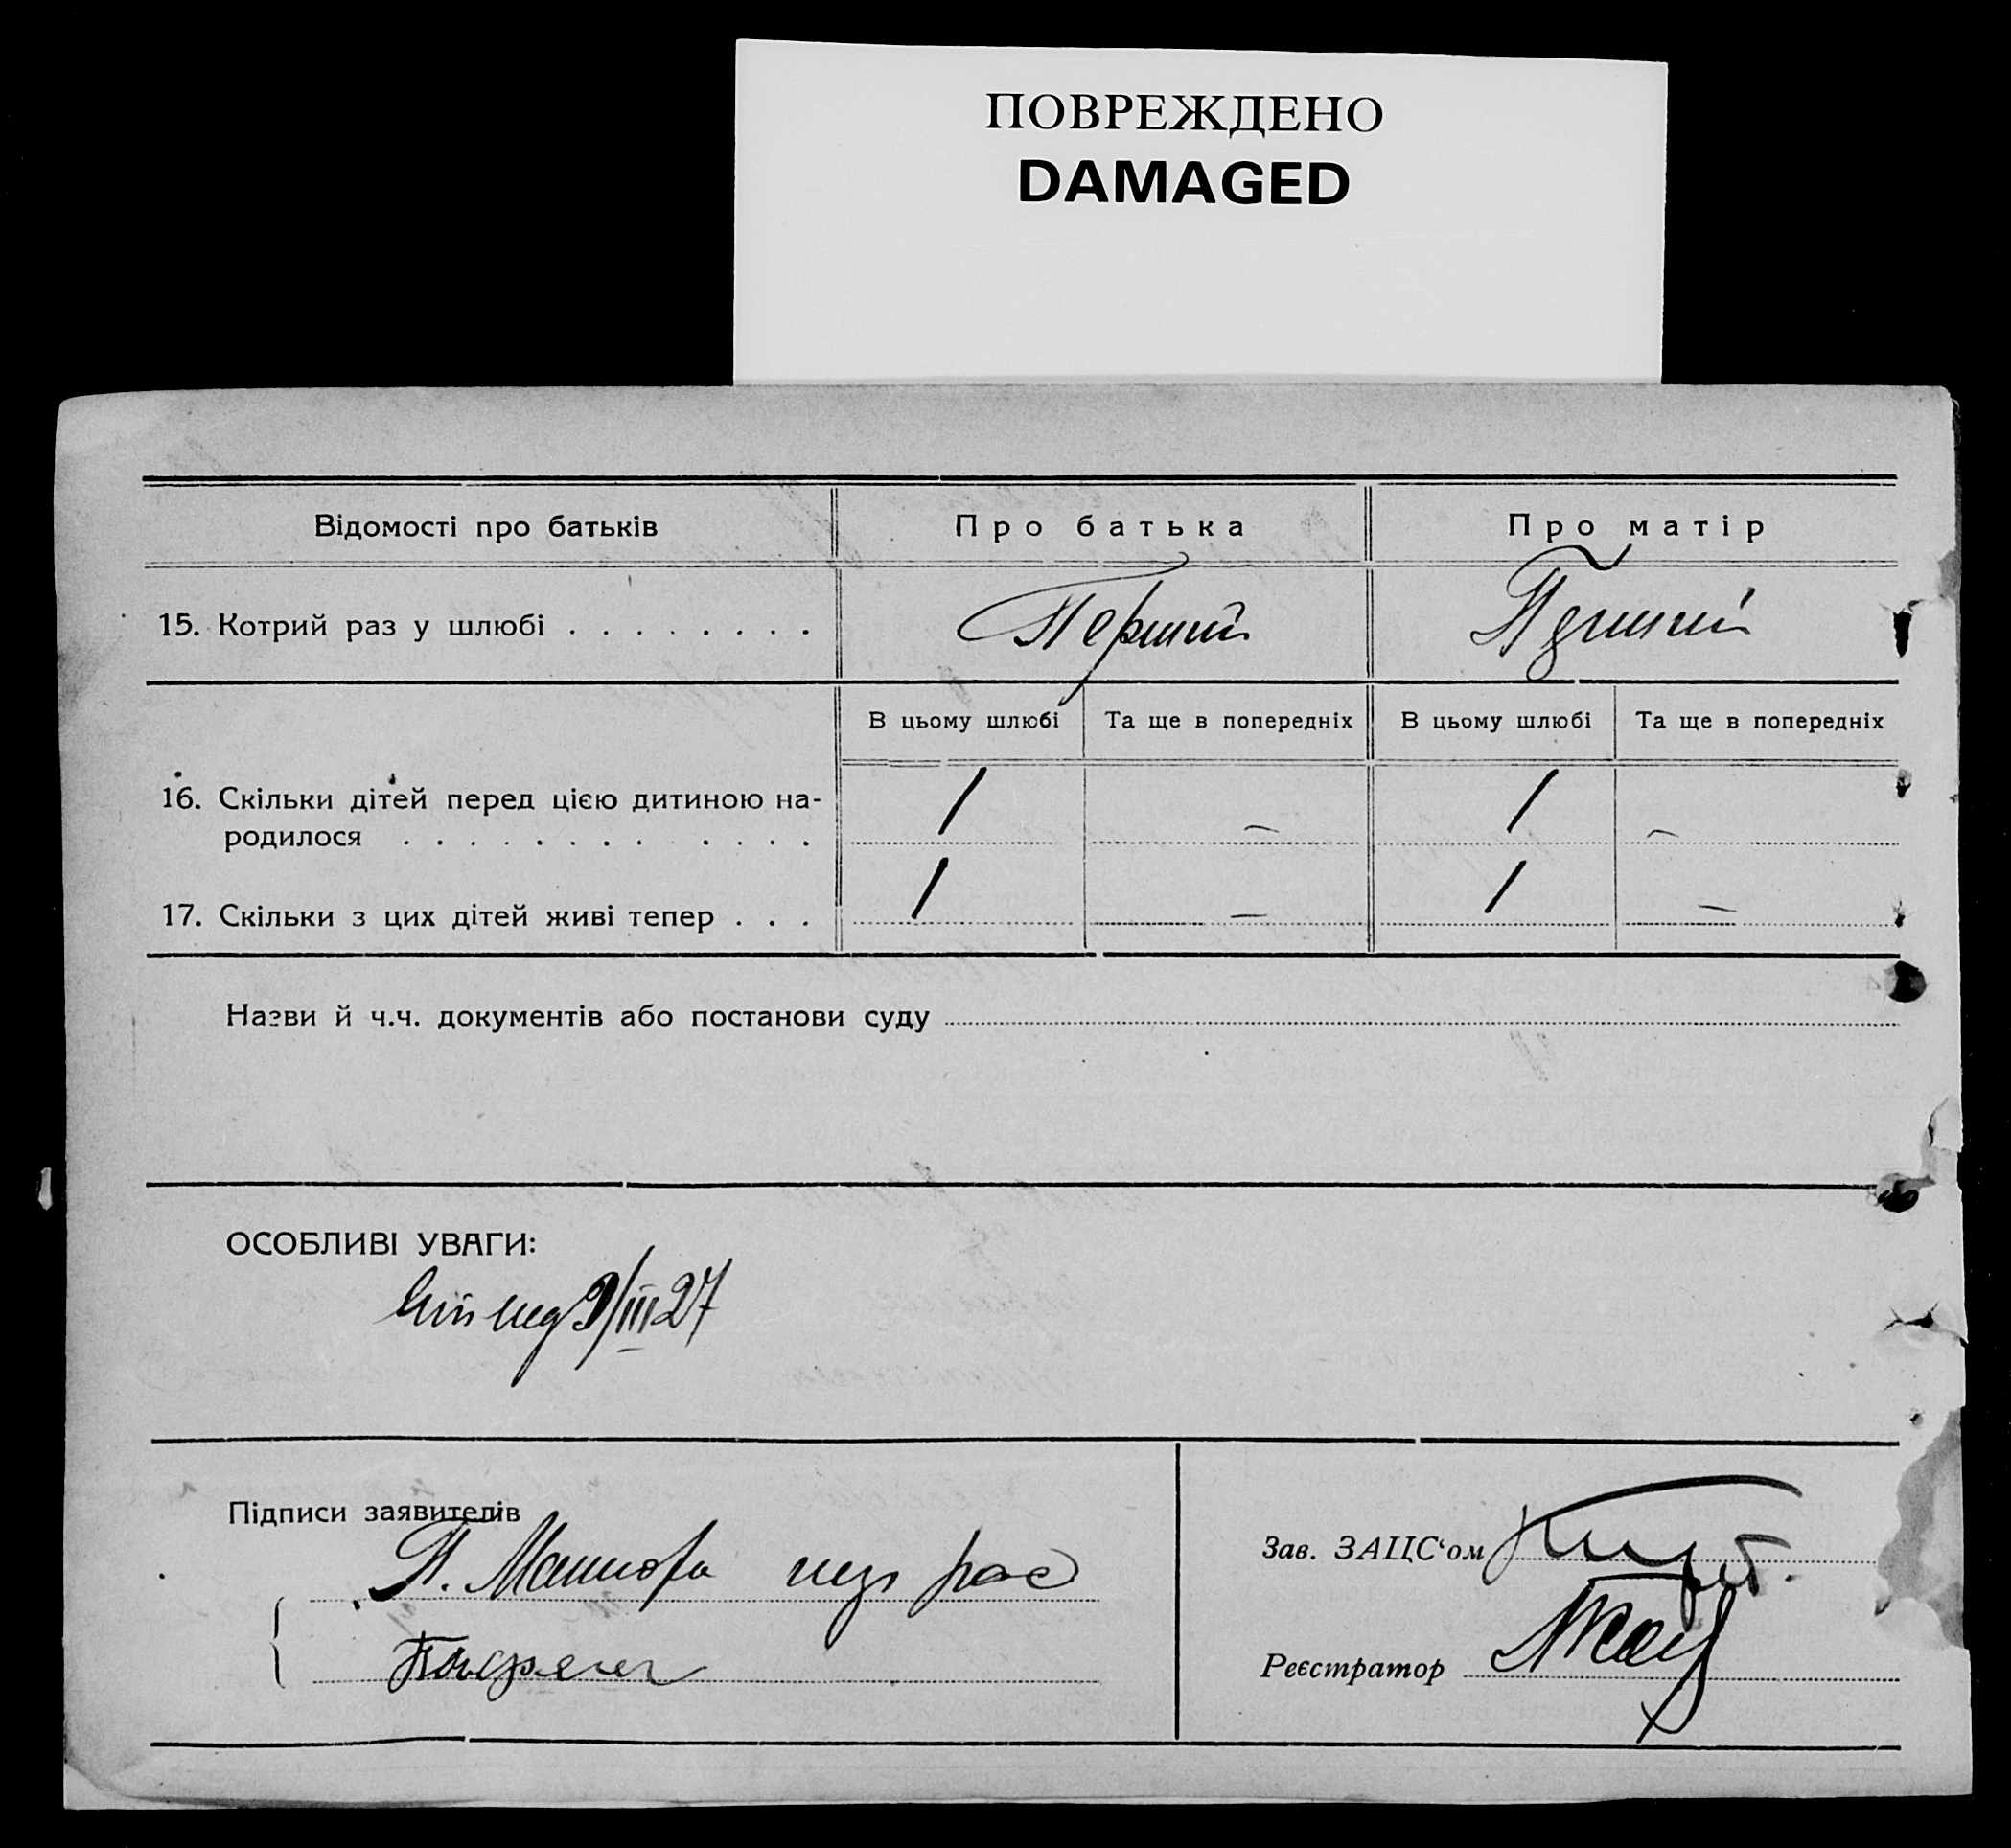 ПОВРЕЖДЕНО
DAMAGED
Відомості про батьків
Про батька
Про матір
15. Котрий раз у шлюбі . . . . . . . .
Перший
Перший
В цьому шлюбі
Та ще в попередніх
В цьому шлюбі
Та ще в попередніх
16. Скільки дітей перед цією дитиною на-
родилося . . . . . . . . . . . .
1
–
1
–
17. Скільки з цих дітей живі тепер . . .
1
–
1
–
Назви й ч.ч. документів або постанови суду
ОСОБЛИВІ УВАГИ:
9/III 27
Підписи заявителів
Зав. ЗАЦС‘ом
Реєстратор